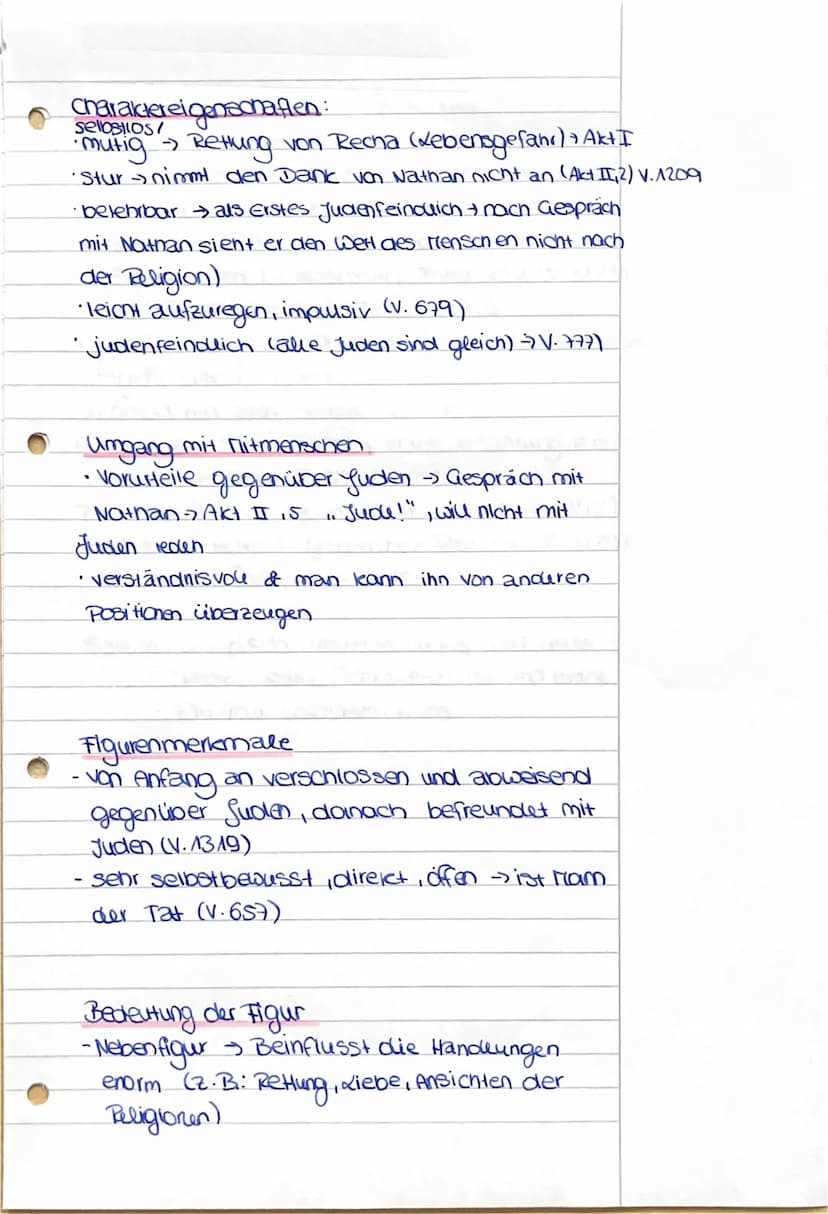 Charaktereigenschaften:
selbstlos/
·mutig → Rettung von Recha (Lebensgefahr) → Akt I
·stur → nimmt den Dank von Nathan nicht an (Akt II,2) V.1209
·belehrbar → als Erstes Judenfeindlich → nach Gespräch
mit Nathan sieht er den Wert des Menschen nicht nach
der Religion)
·leicht aufzuregen, impulsiv (V. 679)
· judenfeindlich (alle Juden sind gleich) → V. 777)
Umgang mit Mitmenschen
· Vorurteile gegenüber Juden → Gespräch mit
Nathan → Akt II ,5 „Jude!", will nicht mit
Juden reden
· verständnisvoll & man kann ihn von anderen
Positionen überzeugen
Figurenmerkmale
- von Anfang an verschlossen und abweisend
gegenüber Juden, danach befreundet mit
Juden (V. 1319)
- sehr selbstbewusst, direkt, offen → ist Mann
der Tat (V. 657)
Bedeutung der Figur
- Nebenfigur → Beinflusst die Handlungen
enorm (z.B: Rettung, Liebe, Ansichten der
Religionen)